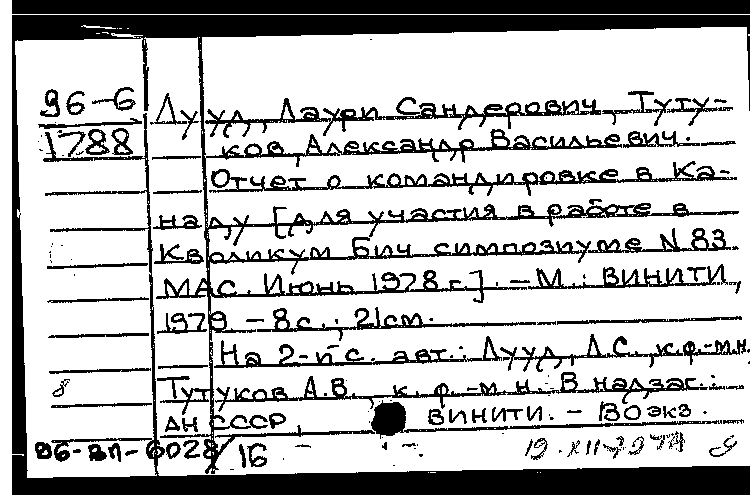 96-6
1788
Лууд, Лаури Сандерович, Туту-
ков, Александр Васильевич.
Отчет о командировке в Ка-
наду [для участия в работе в
Кволикум Бич симпозиуме N 83
МАС. Июнь 1978 г.]. - М.: ВИНИТИ,
1979. - 8 с.; 21 см.
На 2-й с. авт.: Лууд, Л.С., к.ф.-м.н.
8
Тутуков А.В., к.ф.-м.н. В надзаг.:
АН СССР, ВИНИТИ. - 130 экз.
96-вп-6028/16